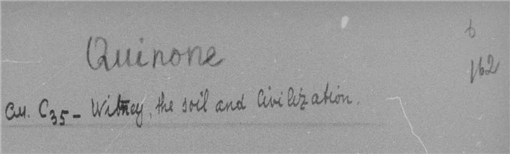 Quinone
б
162
см. C35 - Witney, the soil and Civilization.